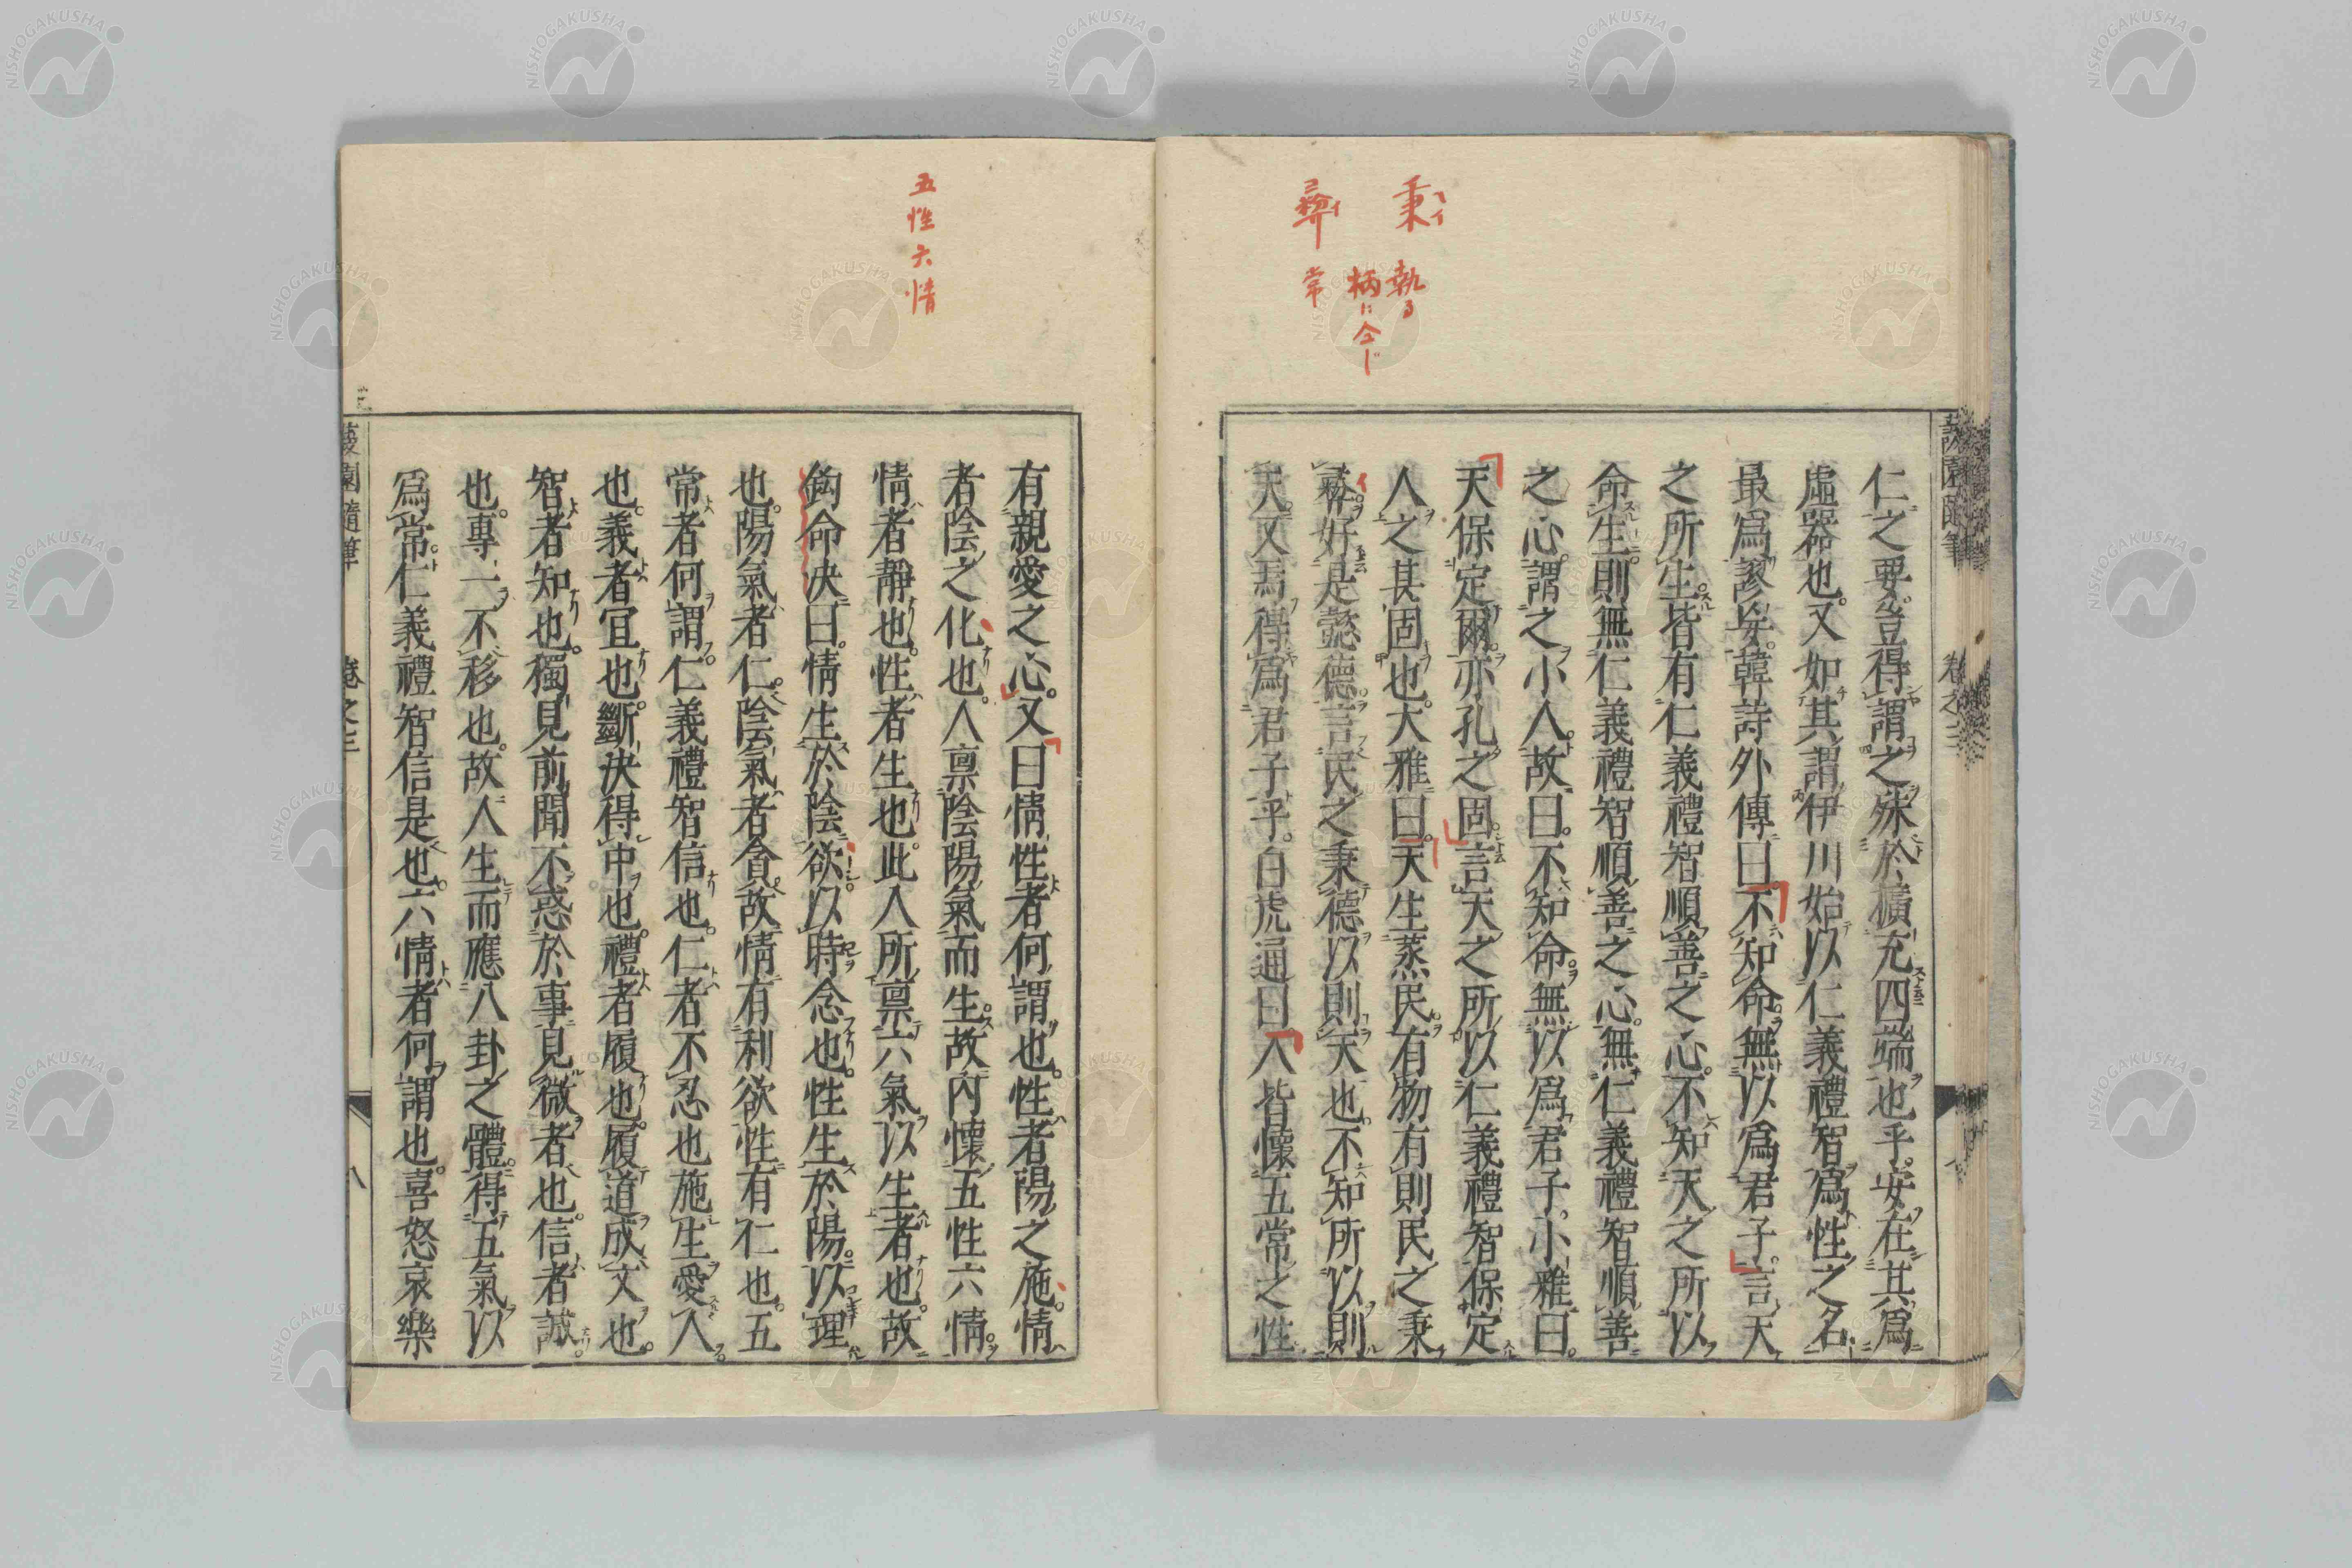 秉 ヘイ 執る
柄に仝じ
彛 イ 常
仁之要。豈得謂之殊於擴充四端也乎。安在其爲
虛器也。又如其謂伊川始以仁義禮智爲性之名
最爲謬妄。韓詩外傳曰不知命無以爲君子。言天
之所生。皆有仁義禮智順善之心。不知天之所以
命生則無仁義禮智順善之心。無仁義禮智順善
之心。謂之小人。故曰。不知命無以爲君子。小雅曰。
天保定爾。亦孔之固。言天之所以仁義禮智保定
人之甚固也。大雅曰。天生蒸民。有物有則民之秉
彝。好是懿德。言民之秉德以則天也。不知所以則
天。又焉得爲君子乎。白虎通曰人皆懷五常之性
蘐園隨筆 卷之三
五性六情
有親愛之心。又曰情性者何謂也。性者陽之施。情
者陰之化也。人禀陰陽氣而生。故內懷五性六情。
情者靜也。性者生也。此人所禀六氣以生者也。故
鉤命决曰。情生於陰。欲以時念也。性生於陽。以理
也。陽氣者仁。陰氣者貪。故情有利欲性有仁也。五
常者何謂。仁義禮智信也。仁者不忍也施生愛人。
也。義者宜也。斷决得中也。禮者履也。履道成文也。
智者知也。獨見前聞不惑於事見微者也。信者誠。
也。專一不移也。故人生而應八卦之體。得五氣以
爲常。仁義禮智信是也。六情者何謂也。喜怒哀樂
蘐園隨筆 卷之三 八
NISHOGAKUSHA